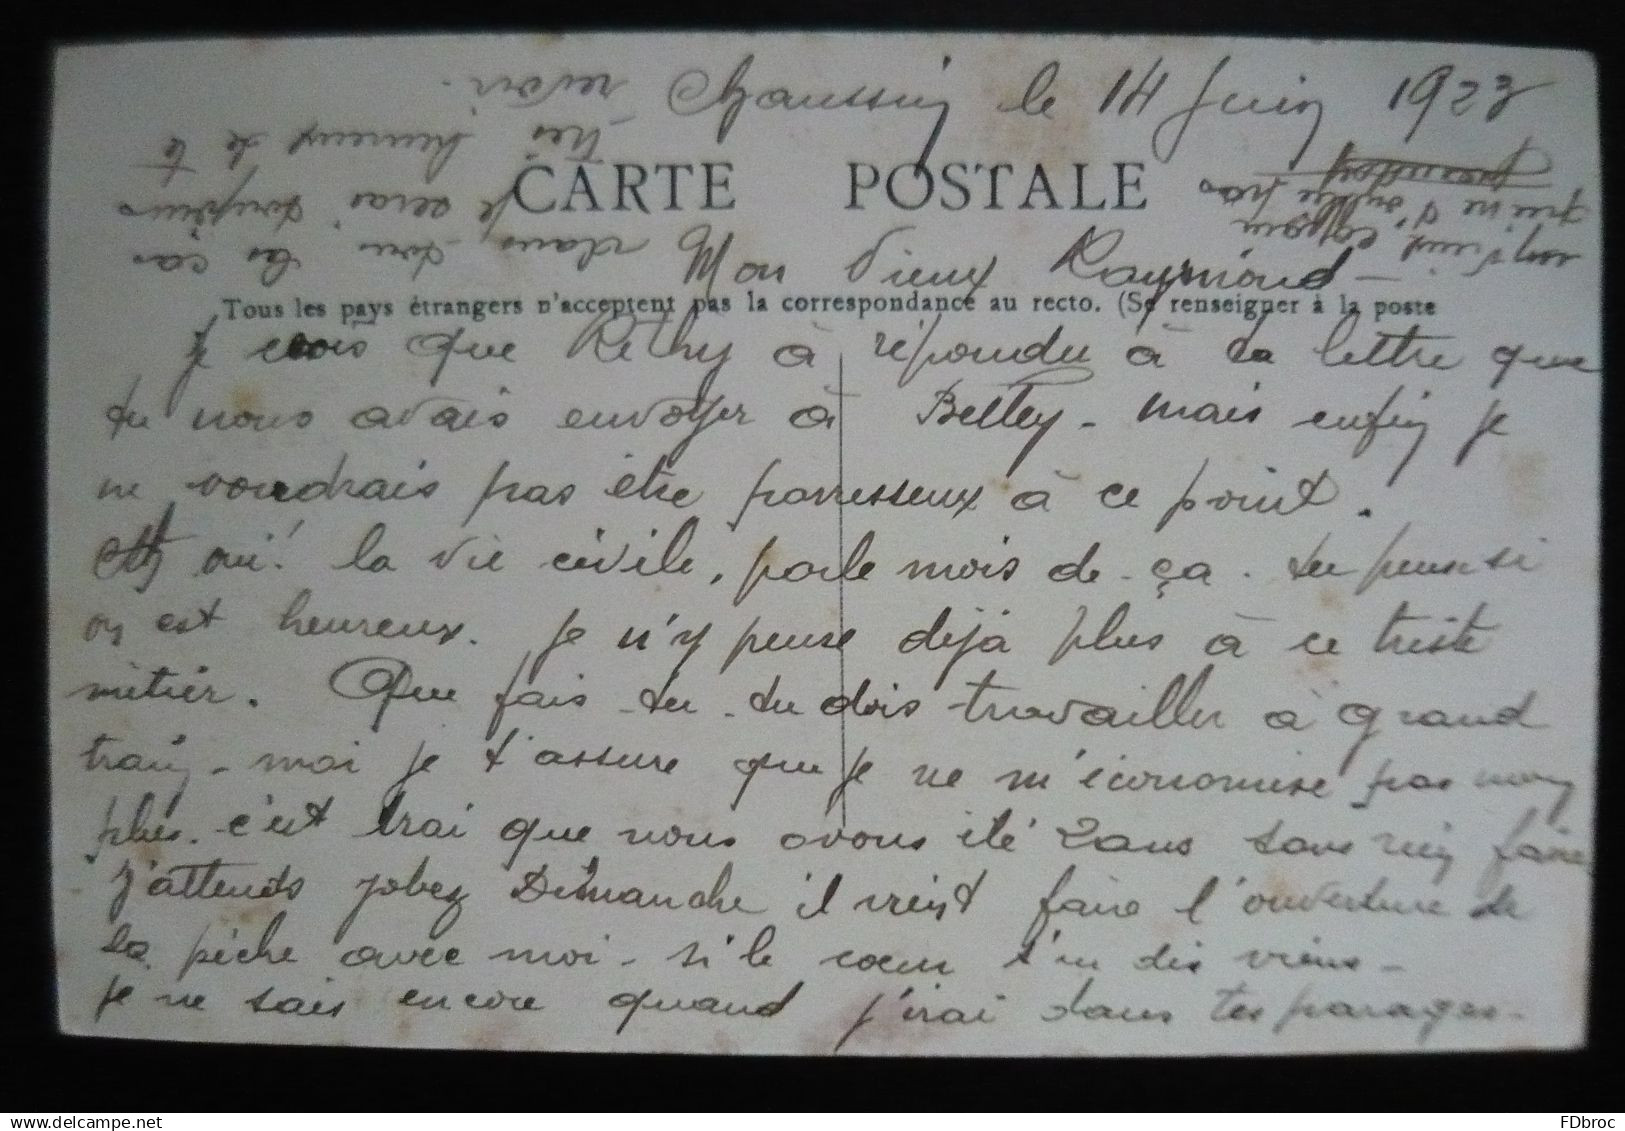 Chaussin le 14 Juin 1923
CARTE POSTALE
Mon Vieux Raymond -
Tous les pays étrangers n'acceptent pas la correspondance au recto. (Se renseigner à la poste
Je crois que Rethy à répondu à la lettre que
tu nous avais envoyer à Belley - mais enfin je
ne voudrais pas être parresseux à ce point.
Ah oui! la vie civile, parle mois de - ça - tu penses si
on est heureux. Je n'y pense déjà plus à ce triste
métier. Que fais-tu - tu dois travailler à grand
train - moi je t'assure que je ne m'économise pas non
plus. c'est vrai que nous avons été 2 ans sans rien faire
J'attends jobez Dimanche il vient faire l'ouverture de
la pêche avec moi - si le coeur t'en dis viens -
je ne sais encore quand j'irai dans tes parages -
dans tou les cas
je serai toujours
très heureux de te
revoir.
copain
qui ne t'oublie pas
FDbroc